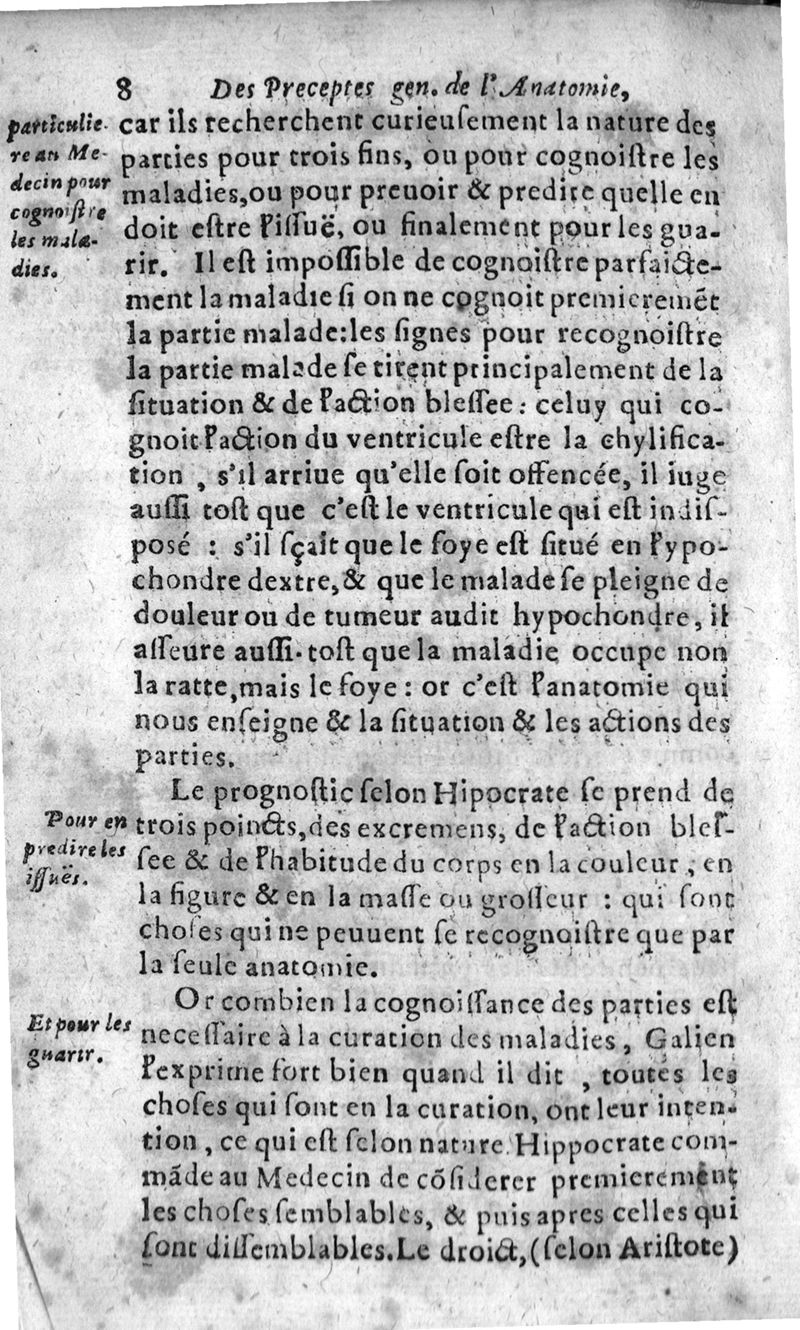 8 Des Preceptes gen. de l'Anatomie,
particulie-
re au Me-
decin pour
cognoiſtre
les mala-
dies.
car ils recherchent curieuſement la nature des
parties pour trois fins, ou pour cognoiſtre les
maladies, ou pour preuoir & predire quelle en
doit eſtre l'iſſuë, ou finalement pour les gua-
rir. Il eſt impoſſible de cognoiſtre parfaicte-
ment la maladie ſi on ne cognoit premieremẽt
la partie malade: les ſignes pour recognoiſtre
la partie malade ſe tirent principalement de la
ſituation & de l'action bleſſee: celuy qui co-
gnoit l'action du ventricule eſtre la chylifica-
tion, s'il arriue qu'elle ſoit offencée, il iuge
auſſi toſt que c'eſt le ventricule qui eſt indiſ-
posé : s'il ſçait que le foye eſt ſitué en l'ypo-
chondre dextre, & que le malade ſe pleigne de
douleur ou de tumeur audit hypochondre, il
aſſeure auſſi-toſt que la maladie occupe non
la ratte, mais le foye : or c'eſt l'anatomie qui
nous enſeigne & la ſituation & les actions des
parties.
Le prognoſtic ſelon Hipocrate ſe prend de
Pour en
predire les
iſſuës.
trois poincts, des excremens, de l'action bleſ-
ſee & de l'habitude du corps en la couleur, en
la figure & en la maſſe ou groſſeur : qui ſont
choſes qui ne peuuent ſe recognoiſtre que par
la ſeule anatomie.
Or combien la cognoiſſance des parties eſt
Et pour les
guarir.
neceſſaire à la curation des maladies, Galien
l'exprime fort bien quand il dit, toutes les
choſes qui ſont en la curation, ont leur inten-
tion, ce qui eſt ſelon nature. Hippocrate com-
mãde au Medecin de cõſiderer premierement
les choſes ſemblables, & puis apres celles qui
ſont diſſemblables. Le droict, (ſelon Ariſtote)